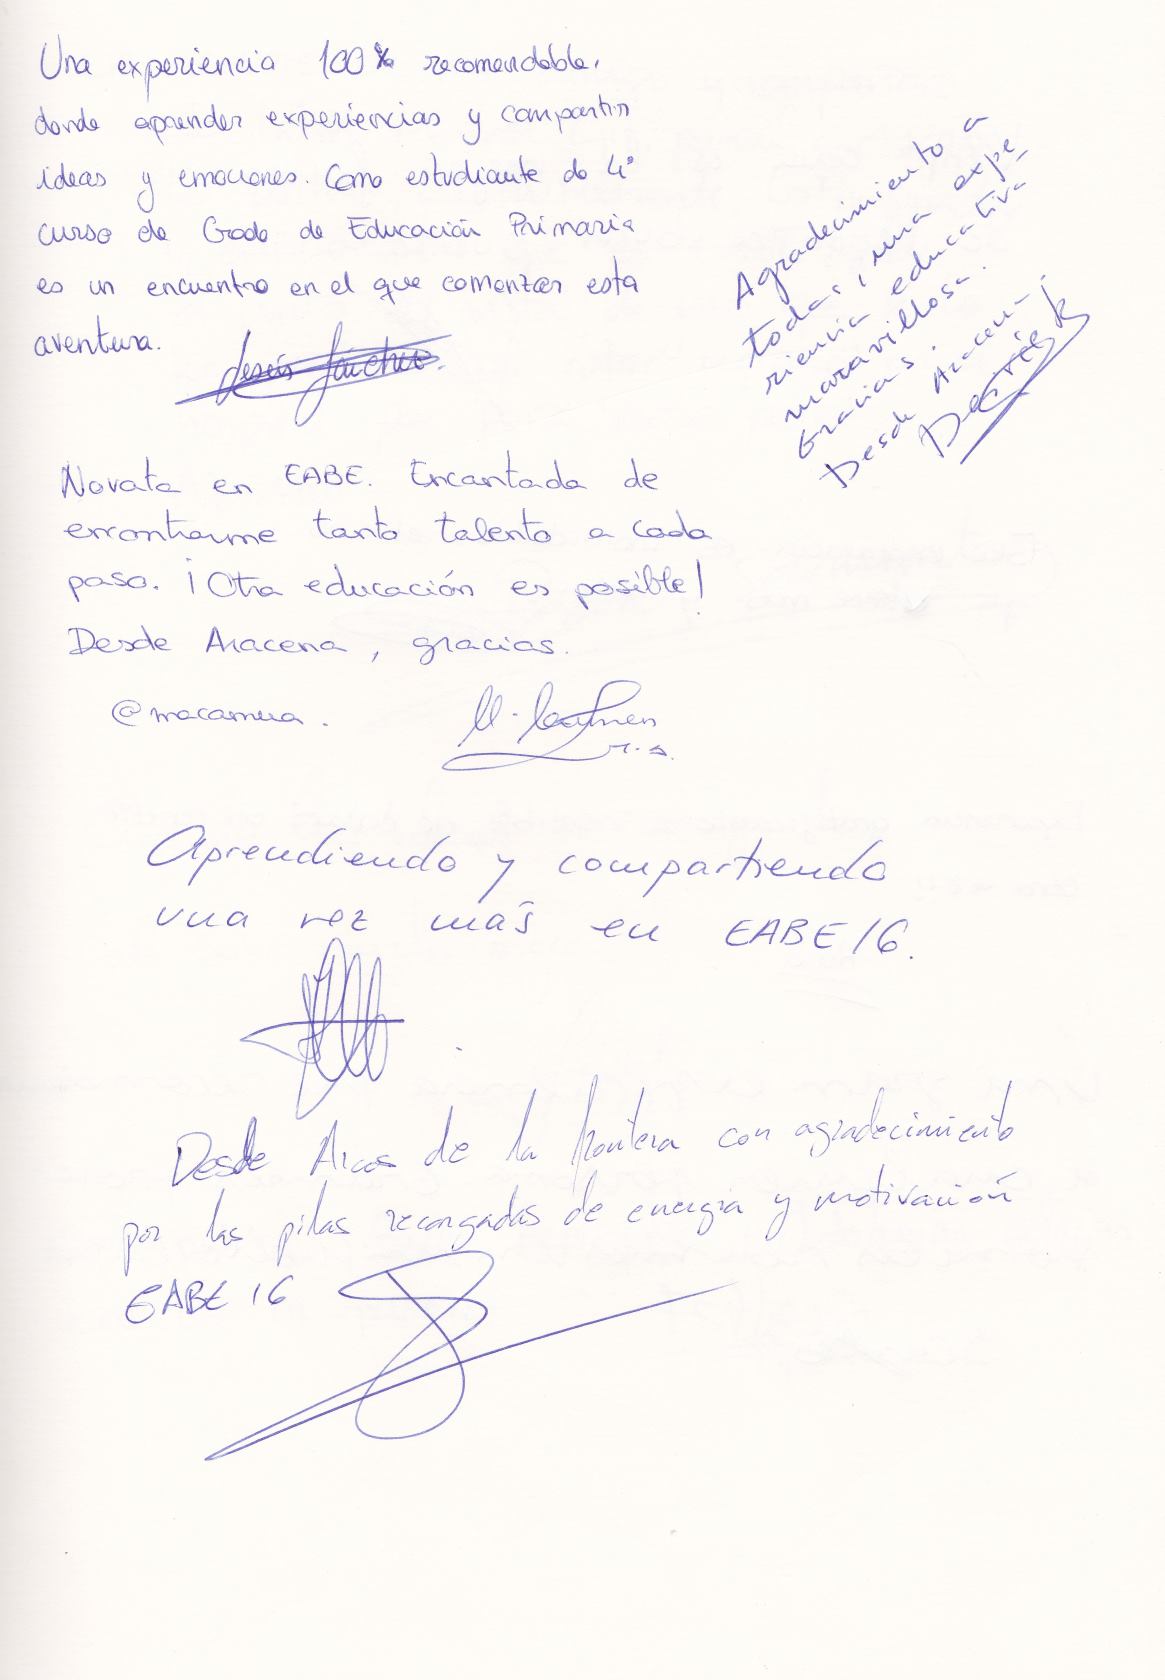 Una experiencia 100% recomendable,
donde aprender experiencias y compartir
ideas y emociones. Como estudiante de 4º
curso de Grado de Educación Primaria
es un encuentro en el que comenzar esta
aventura.
Jesús Sánchez
Agradecimiento a
todas, una expe_
riencia educativa
maravillosa.
Gracias.
Desde Aracena!
Desirée
Novata en EABE. Encantada de
encontrarme tanto talento a cada
paso. ¡Otra educación es posible!
Desde Aracena, gracias.
@macamua.
M. Carmen
Aprendiendo y compartiendo
una vez más en EABE16.
Desde Arcos de la frontera con agradecimiento
por las pilas recargadas de energía y motivación
EABE 16